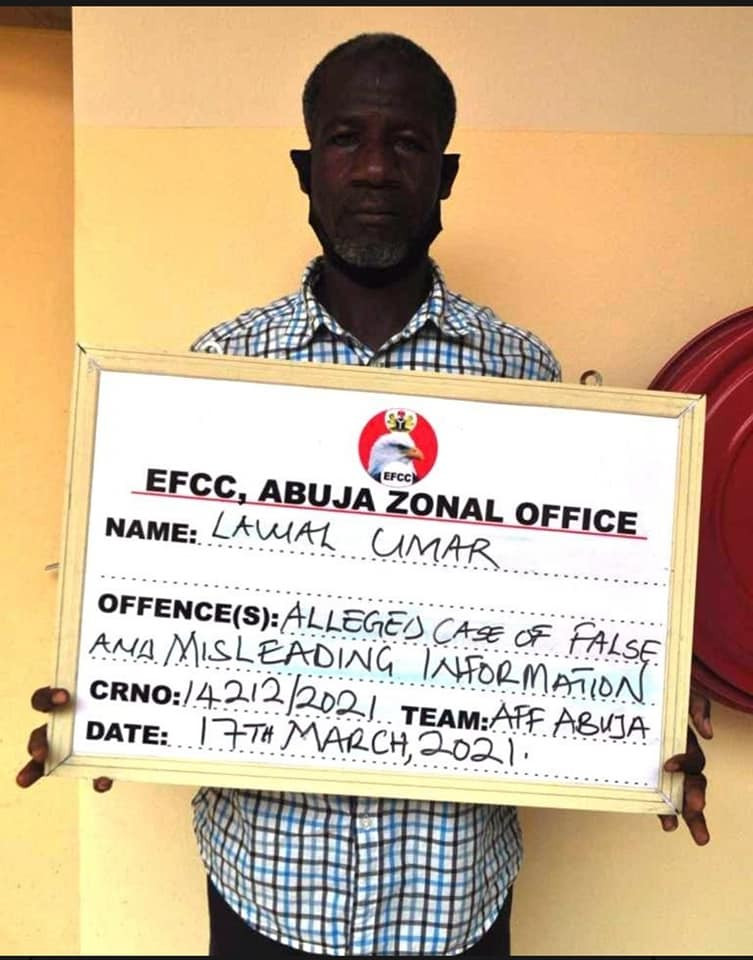 EFCC
EFCC, ABUJA ZONAL OFFICE
NAME: LAWAL UMAR
OFFENCE(S): ALLEGED CASE OF FALSE
AND MISLEADING INFORMATION
CRNO: 14212/2021 TEAM: AFF ABUJA
DATE: 17TH MARCH, 2021.